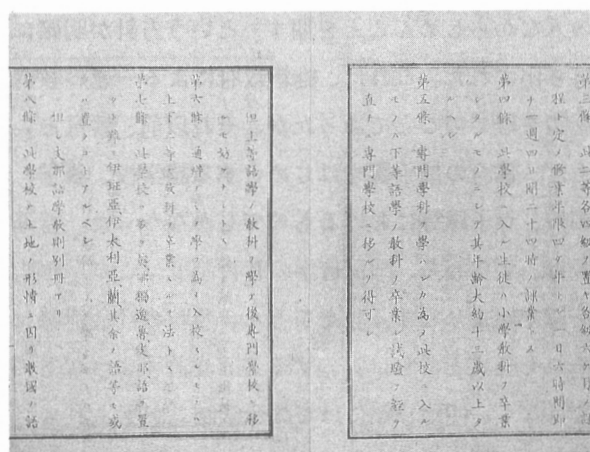 第三條 此二等各四級ヲ置キ各級六ケ月ノ課
程ト定メ修業年限四ケ年トシ一日六時間即
チ一週四日間二十四時ノ課業トス
第四條 此學校ニ入ル生徒ハ小學教科ヲ卒業
シタルモノニシテ其年齡大約十三歲以上タ
ルヘシ
第五條 專門學科ヲ學ハンカ為メ此校ニ入ル
モノハ下等語學ノ教科ヲ卒業シ試驗ヲ經テ
直チニ專門學校ニ移ルヲ得可シ
但上等語學ノ教科ヲ學ヒ後專門學校ニ移
ルモ妨ケナシトス
第六條 通辨ノミヲ學フ為メ入校スルモノハ
上下二等ノ教科ヲ卒業スルヲ法トス
第七條 此學校ハ英佛獨逸魯支那語ヲ置
伊斑亞伊太利亞蘭其余ノ語等ハ或
ハ置クコトアルヘシ
但シ支那語學教則別冊アリ
第八條 此學校ハ土地ノ形情ニ因リ數國ノ語